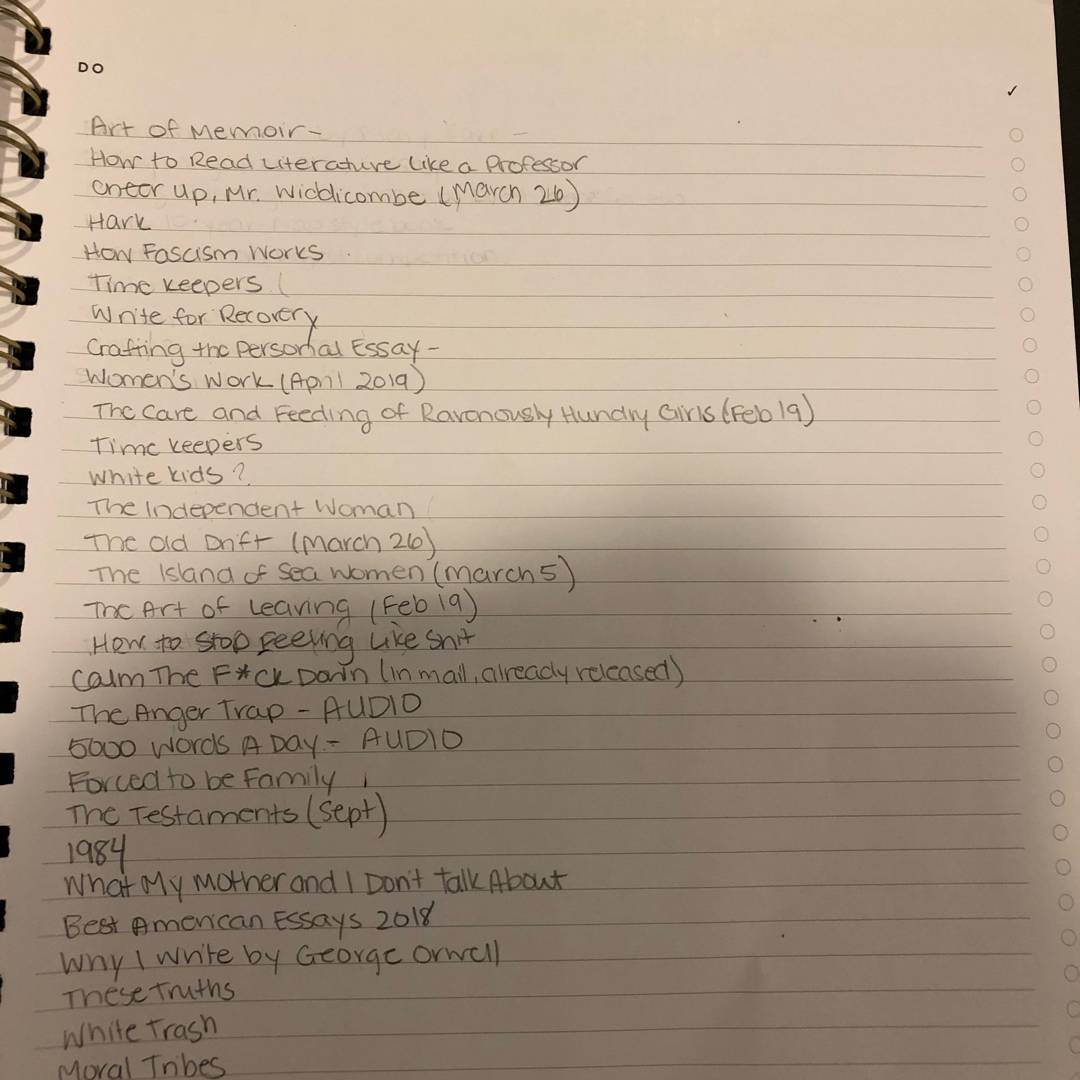 DO
✓
Art of Memoir-
How to Read Literature Like a Professor
Cheer up, Mr. Widdicombe (March 26)
Hark
How Fascism Works
Time Keepers (
Write for Recovery
Crafting the Personal Essay -
Women's Work (April 2019)
The Care and Feeding of Ravenously Hundry Girls (Feb 19)
Time Keepers
White Kids?
The Independent Woman
The Old Drift (March 26)
The Island of Sea Women (March 5)
The Art of Leaving (Feb 19)
How to Stop Feeling Like Shit
Calm The F*ck Down (in mail, already released)
The Anger Trap - AUDIO
5000 Words A Day - AUDIO
Forced to be Family
The Testaments (Sept)
1984
What My Mother and I Don't Talk About
Best American Essays 2018
Why I Write by George Orwell
These Truths
White Trash
Moral Tribes